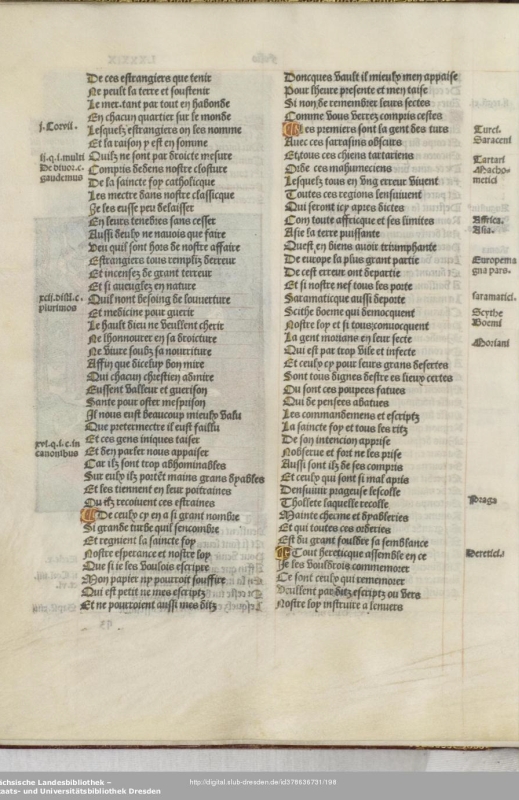 De ces estrangiers que tenir
Ne peult la terre et soustenir
Le mettant par tout en habonde
En chacun quartier sur le monde
j. Corril.
Lesquelz estrangiers on les nomme
Et la raison y est en somme
ij.q.i.multi
De diuor.c.
gaudemus
Quilz ne sont par droicte mesure
Compris dedens nostre closture
De la saincte foy catholicque
Les mectre dans nostre classicque
Je les eusse peu delaisser
En leurs tenebres sans cesser
Aussi deulx ne nauois que faire
Veu quil sont hors de nostre affaire
Estrangiers tous rempliz derreur
Et incensez de grant terreur
Et si aueuglez en nature
xcii.dist.c.
plurimos
Quil nont besoing de louuerture
Et medicine pour guerir
Le hault dieu ne veullent cherir
Ne lhonnourer en sa droicture
Ne viure soubz sa nourriture
Affin que diceluy don mire
Qui chacun chrestien admire
Eussent valleur et guerison
Sante pour oster mesprison
Il nous eust beaucoup mieulx valu
Que pretermectre il eust fallu
xvi.q.i.c.in
canonibus
Et ces gens iniques taiser
Et den parler nous appaiser
Car ilz sont trop abhominables
Sur eulx ilz portēt mains grans dyables
Et les tiennent en leur poitraines
Quelz recoiuent ces estraines
De ceulx cy en a si grant nombre
Si grande turbe quil sencombre
Et regnient la saincte foy
Nostre esperance et nostre loy
Que si ie les voulois escripre
Mon papier ny pourroit souffire
Qui est petit ne mes escriptz
Et ne pourroient aussi mes ditz
Doncques vault il mieulx men appaise
Pour lheure presente et men taise
Si non de remembrer leurs sectes
Comme vous verrez compris cestes
Les premiers sont la gent des turs
Turci.
Auec ces sarrasins obscurs
Saraceni
Et tous ces chiens tartariens
Tartari
Orde ces mahumeciens
Macho-
metici
Lesquelz tous en vng erreur viuent
Toutes ces regions lensuiuent
Qui seront icy apres dictes
Com toute affricque et ses limites
Affrica.
Asie la terre puissante
Asia.
Quest en biens auoir triumphante
De europe la plus grant partie
Europema
gna pars.
De cest erreur ont departie
Et si nostre nef tous les porte
Saramaticque aussi deporte
saramatici.
Scithe boeme qui democquent
Scythe
Boemi
Nostre loy et si tous conuocquent
La gent moriane en leur secte
Moriani
Qui est par trop vile et infecte
Et ceulx cy pour leurs grans desertes
Sont tous dignes destre es lieux certes
Ou sont ces poupees fatues
Qui de pensees abatues
Les commandemens et escriptz
La saincte foy et tous les ritz
De son intencion apprise
Nobserue et fort ne les prise
Aussi sont ilz de ses compris
Et ceulx qui sont si mal apris
Densuiuir prageuse lescolle
Praga
Thollete laquelle recolle
Mainte cherme et dyableries
Et qui toutes ces orderies
Est du grant souldre sa semblance
Tout hereticque assemble en ce
Heretici.
Je les vouldrois commemorer
Ce sont ceulx qui rememorer
Veullent par ditz escriptz ou vers
Nostre loy instruire a lenuers
Sächsische Landesbibliothek –
Staats- und Universitätsbibliothek Dresden
http://digital.slub-dresden.de/id378636731/198